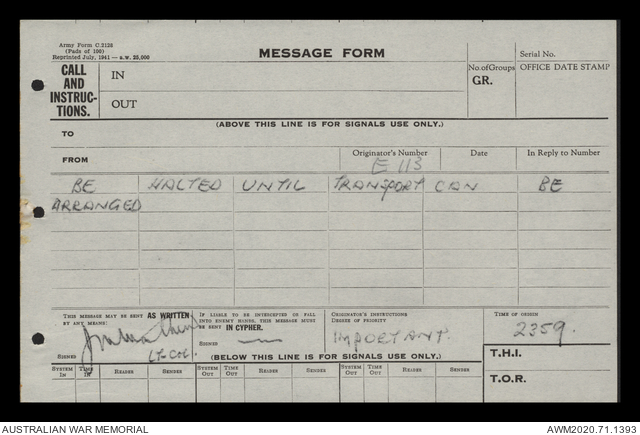 Army Form C.2128
(Pads of 100)
Reprinted July, 1941 — s.w. 25,000
MESSAGE FORM
Serial No.
CALL
AND
INSTRUC-
TIONS.
IN
OUT
No. of Groups
GR.
OFFICE DATE STAMP
(ABOVE THIS LINE IS FOR SIGNALS USE ONLY.)
TO
FROM
Originator's Number
E 113
Date
In Reply to Number
BE HALTED UNTIL TRANSPORT CAN BE
ARRANGED
THIS MESSAGE MAY BE SENT AS WRITTEN
BY ANY MEANS:
SIGNED
Lt-Col.
IF LIABLE TO BE INTERCEPTED OR FALL
INTO ENEMY HANDS, THIS MESSAGE MUST
BE SENT IN CYPHER.
SIGNED
ORIGINATOR'S INSTRUCTIONS
DEGREE OF PRIORITY
IMPORTANT.
TIME OF ORIGIN
2359.
(BELOW THIS LINE IS FOR SIGNALS USE ONLY.)
T.H.I.
T.O.R.
SYSTEM IN TIME IN READER SENDER SYSTEM OUT TIME OUT READER SENDER SYSTEM OUT TIME OUT READER SENDER
AUSTRALIAN WAR MEMORIAL
AWM2020.71.1393